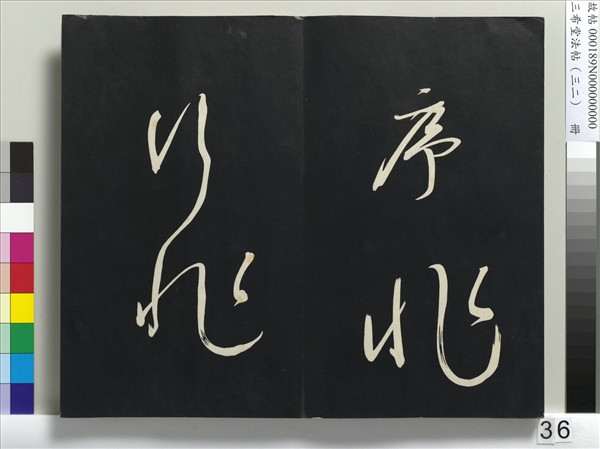 故帖 000189N000000000
三希堂法帖（三二） 冊
序非
行非
36